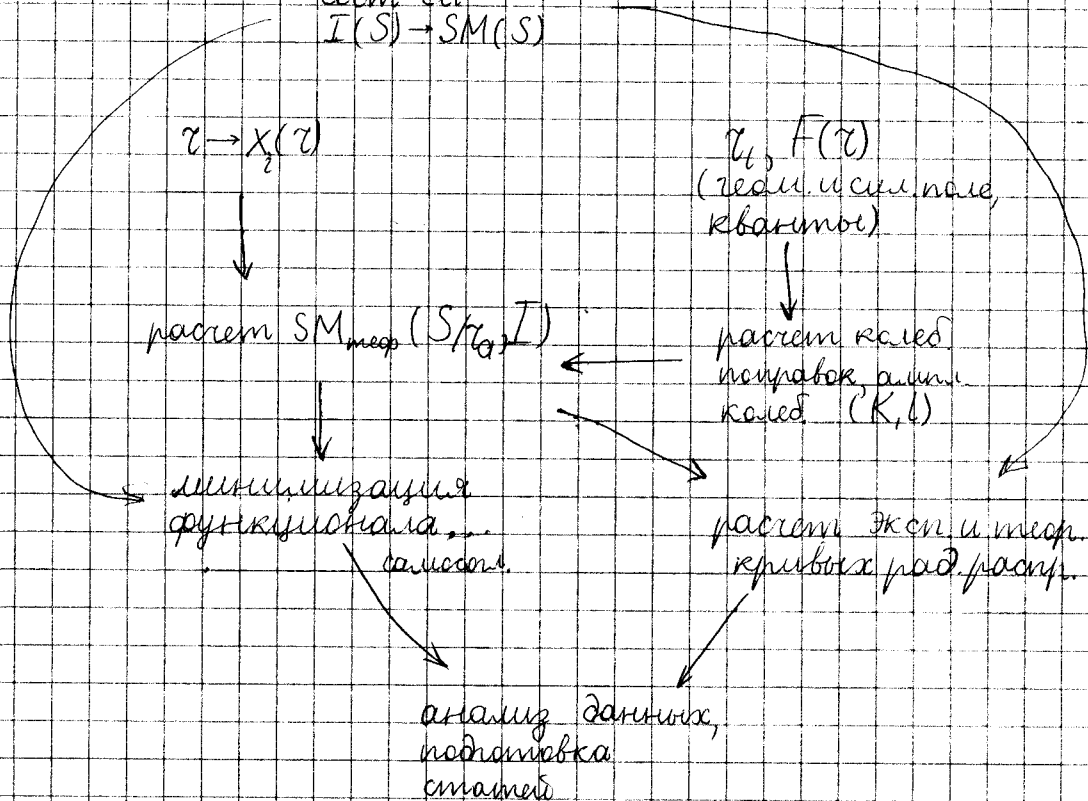 I(S) → SM(S)
τ → X_i(τ)
τ_i, F(τ)
(геом. и сил. поле,
кванты)
расчет SM_теор (S/τ_a, I)
расчет колеб.
поправок, ампл.
колеб. (K, l)
минимизация
функционала...
самосогл.
расчет эксп. и теор.
кривых рад. распр.
анализ данных,
подготовка
статей